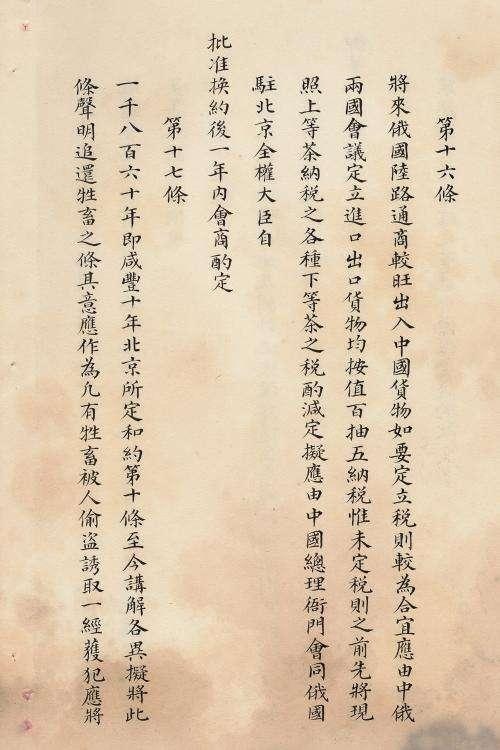 第十六條
將來俄國陸路通商較旺出入中國貨物如要定立税則較為合宜應由中俄
兩國會議定立進口出口貨物均按值百抽五納税惟未定税則之前先將現
照上等茶納税之各種下等茶之税酌減定擬應由中國總理衙門會同俄國
駐北京全權大臣自
批准換約後一年內會商酌定
第十七條
一千八百六十年即咸豐十年北京所定和約第十條至今講解各異擬將此
條聲明追還牲畜之條其意應作為凡有牲畜被人偷盜誘取一經獲犯應將